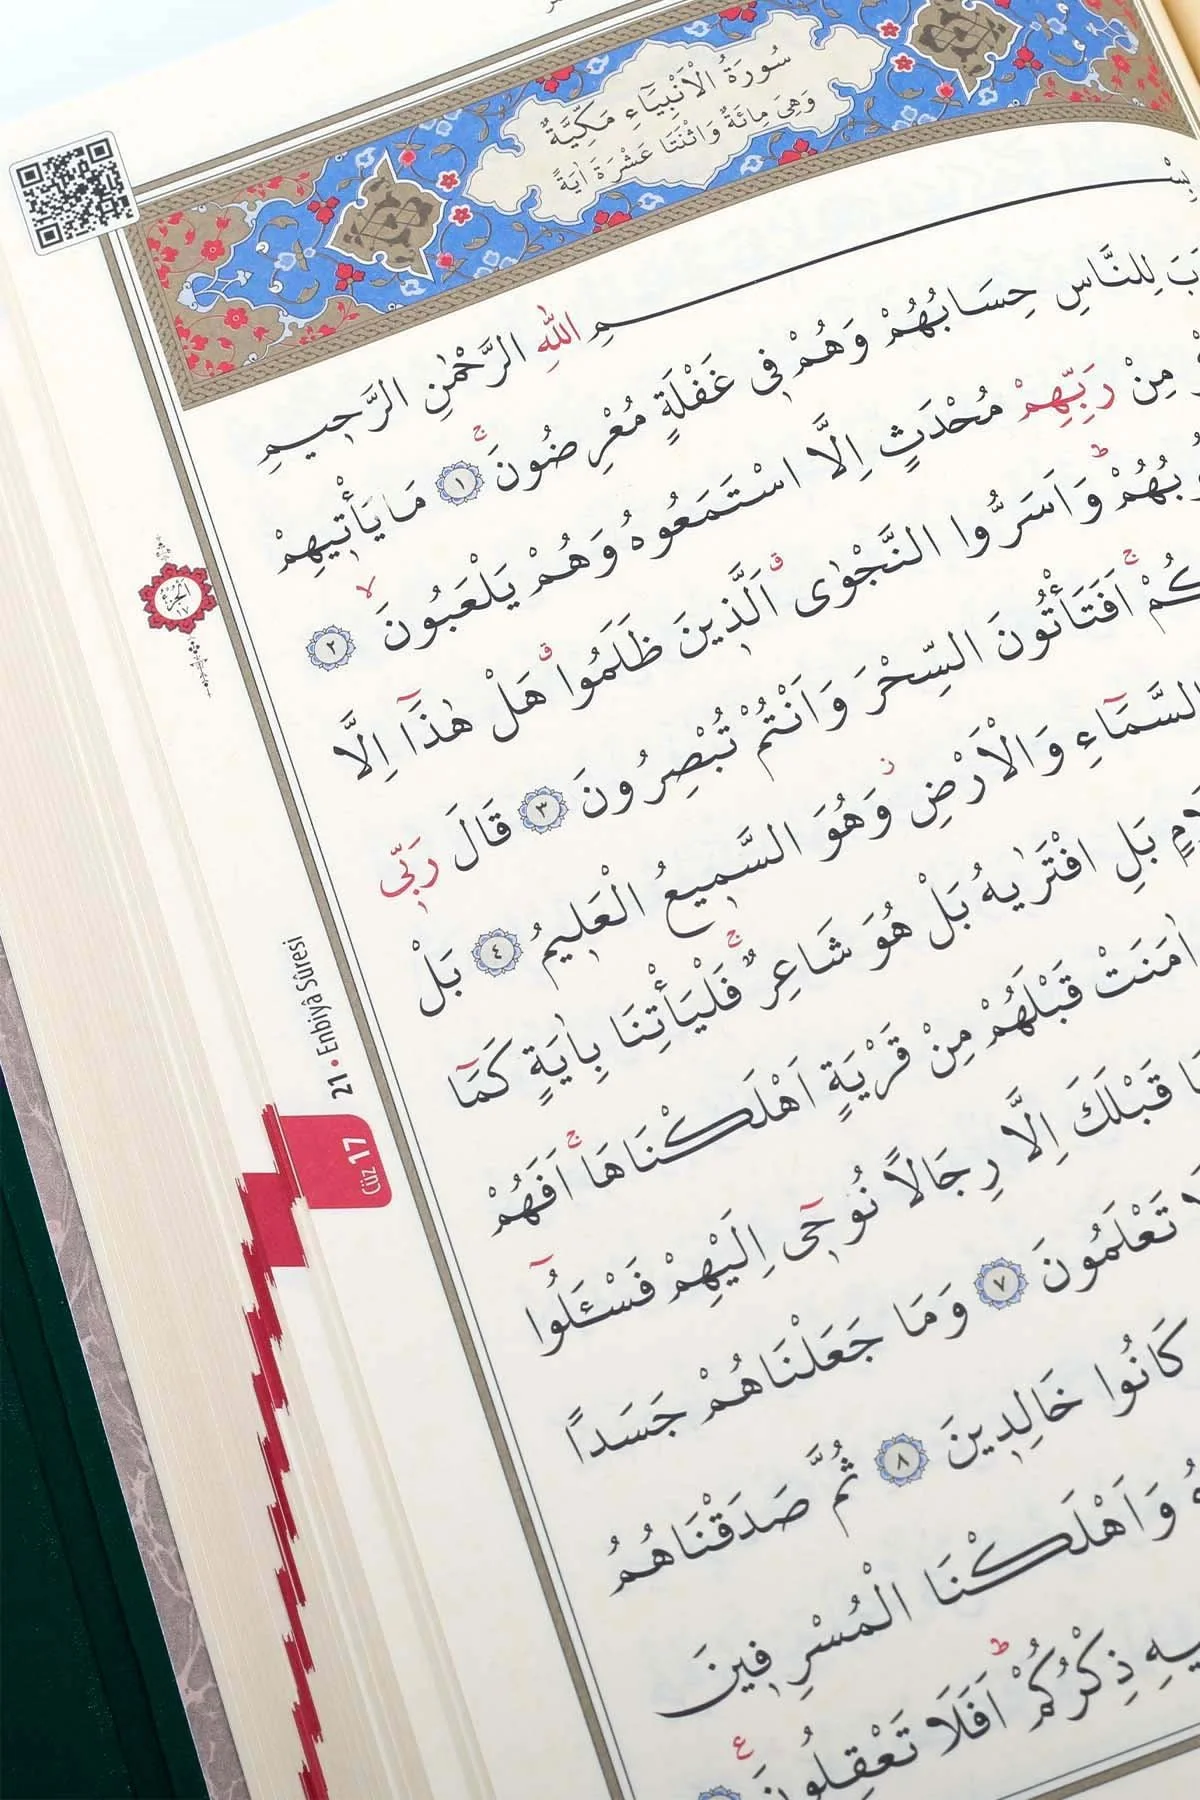 سُورَةُ الْاَنْبِيَاءِ مَكِّيَّةٌ
وَهِيَ مِائَةٌ وَاثْنَتَا عَشْرَةَ اٰيَةً
ـمِ اللّٰهِ الرَّحْمٰنِ الرَّحيمِ
لِلنَّاسِ حِسَابُهُمْ وَهُمْ فى غَفْلَةٍ مُعْرِضُونَۚ ﴿١﴾ مَا يَأْتيهِمْ
مِنْ رَبِّهِمْ مُحْدَثٍ اِلَّا اسْتَمَعُوهُ وَهُمْ يَلْعَبُونَۙ ﴿٢﴾
ـوبُهُمْۜ وَاَسَرُّوا النَّجْوٰىۗ اَلَّذينَ ظَلَمُواۗ هَلْ هٰذَٓا اِلَّا
ـكُمْۚ اَفَتَأْتُونَ السِّحْرَ وَاَنْتُمْ تُبْصِرُونَ ﴿٣﴾ قَالَ رَبّى
السَّمَٓاءِ وَالْاَرْضِؗ وَهُوَ السَّميعُ الْعَليمُ ﴿٤﴾ بَلْ
ـلَامٍ بَلِ افْتَرٰيهُ بَلْ هُوَ شَاعِرٌۚ فَلْيَأْتِنَا بِاٰيَةٍ كَمَٓا
اٰمَنَتْ قَبْلَهُمْ مِنْ قَرْيَةٍ اَهْلَكْنَاهَاۚ اَفَهُمْ
قَبْلَكَ اِلَّا رِجَالًا نُوحٓى اِلَيْهِمْ فَسْـَٔلُٓوا
تَعْلَمُونَ ﴿٧﴾ وَمَا جَعَلْنَاهُمْ جَسَدًا
كَانُوا خَالِدينَ ﴿٨﴾ ثُمَّ صَدَقْنَاهُمُ
وَاَهْلَكْنَا الْمُسْرِفينَ
ـيهِ ذِكْرُكُمْۜ اَفَلَا تَعْقِلُونَ۟
اَلْجُزْءُ
١٧
21 • Enbiyâ Sûresi
Cüz 17